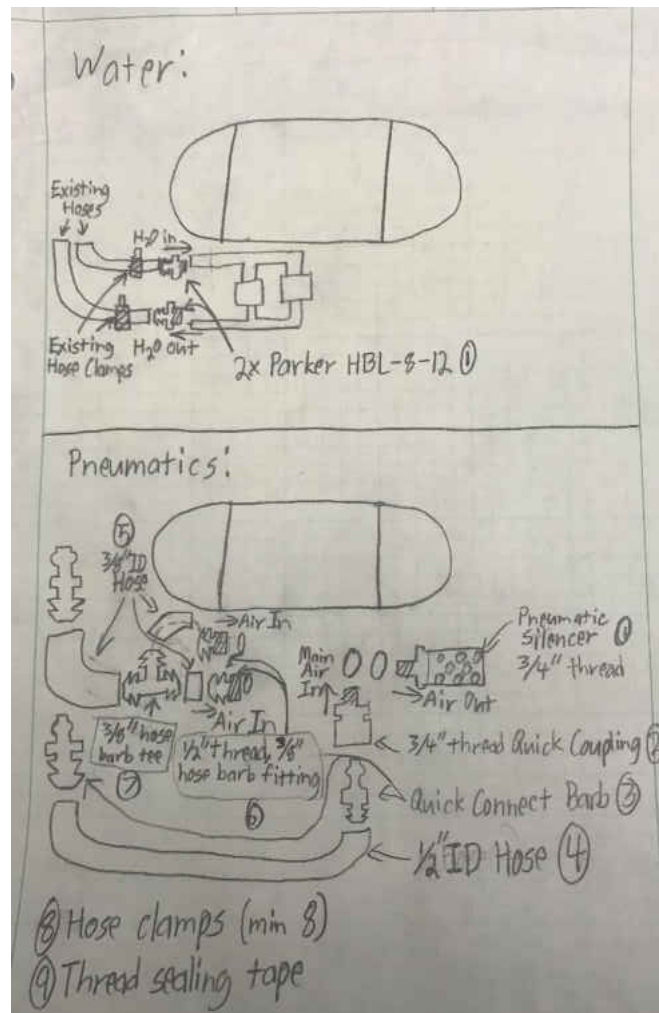 Water:
Existing
Hoses
H₂O in
Existing
Hose Clamps
H₂O out
2x Parker HBL-8-12 ①
Pneumatics:
⑤
3/8" ID
Hose
Air In
Main
Air
In
Pneumatic
Silencer ①
3/4" thread
Air Out
Air In
3/8" hose
barb tee
⑦
1/2" thread, 3/8"
hose barb fitting
⑥
3/4" thread Quick Coupling ②
Quick Connect Barb ③
1/2" ID Hose ④
⑧ Hose clamps (min 8)
⑨ Thread sealing tape